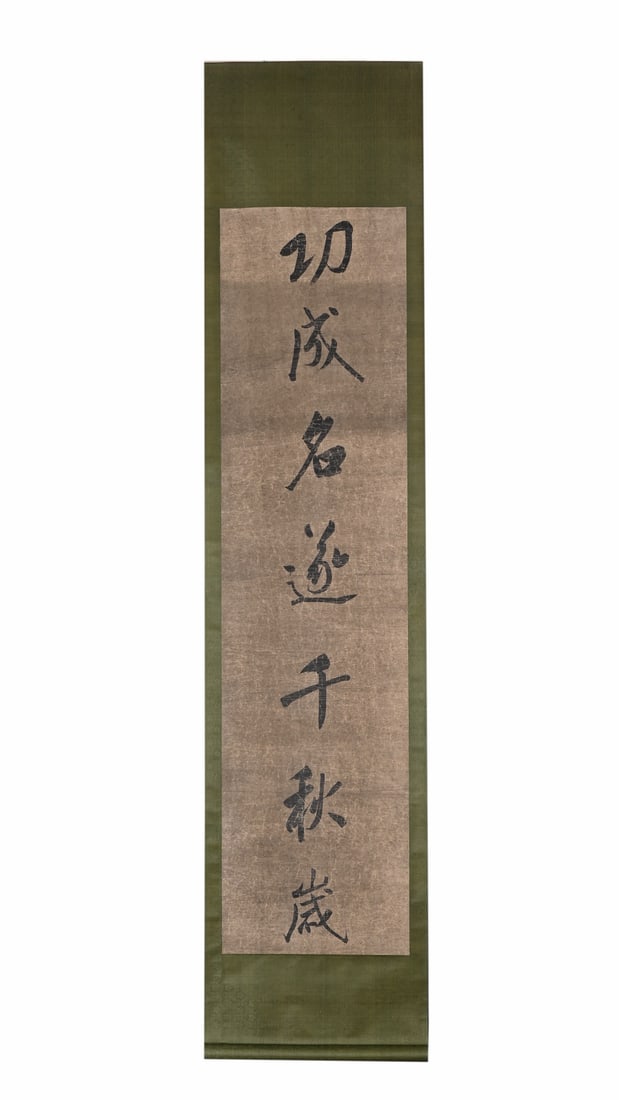 功成名遂千秋歲